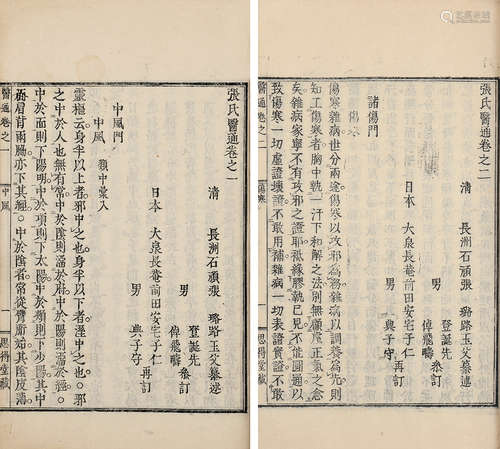 張氏醫通卷之一
清 長洲石頑張 璐路玉父纂述
男 登誕先
倬飛疇 叅訂
日本 大泉長菴前田安宅子仁
男 典子守 再訂
中風門
中風 類中彙入
靈樞云身半以上者邪中之也身半以下者溼中之也○邪
之中於人也無有常中於陰則溜於府中於陽則溜於經○
中於面則下陽明中於項則下太陽中於頰則下少陽其中
背兩脇亦下其經○中於陰者常從臂胻始其陰皮薄
醫通卷之一 中風 一 思得堂藏
張氏醫通卷之二
清 長洲石頑張 璐路玉父纂述
男 登誕先
倬飛疇 叅訂
日本 大泉長菴前田安宅子仁
男 典子守 再訂
諸傷門
傷寒
傷寒雜病世分兩途傷寒以攻邪為務雜病以調養為先則
知工傷寒者胸中執一汗下和解之法別無顧慮正氣之念
矣雜病家寧不有攻邪之證耶祗緣膠執已見不能圓通以
致傷寒一切虛證壞證不敢用補雜病一切表證實證不敢
醫通卷之二 傷寒 一 思得堂藏